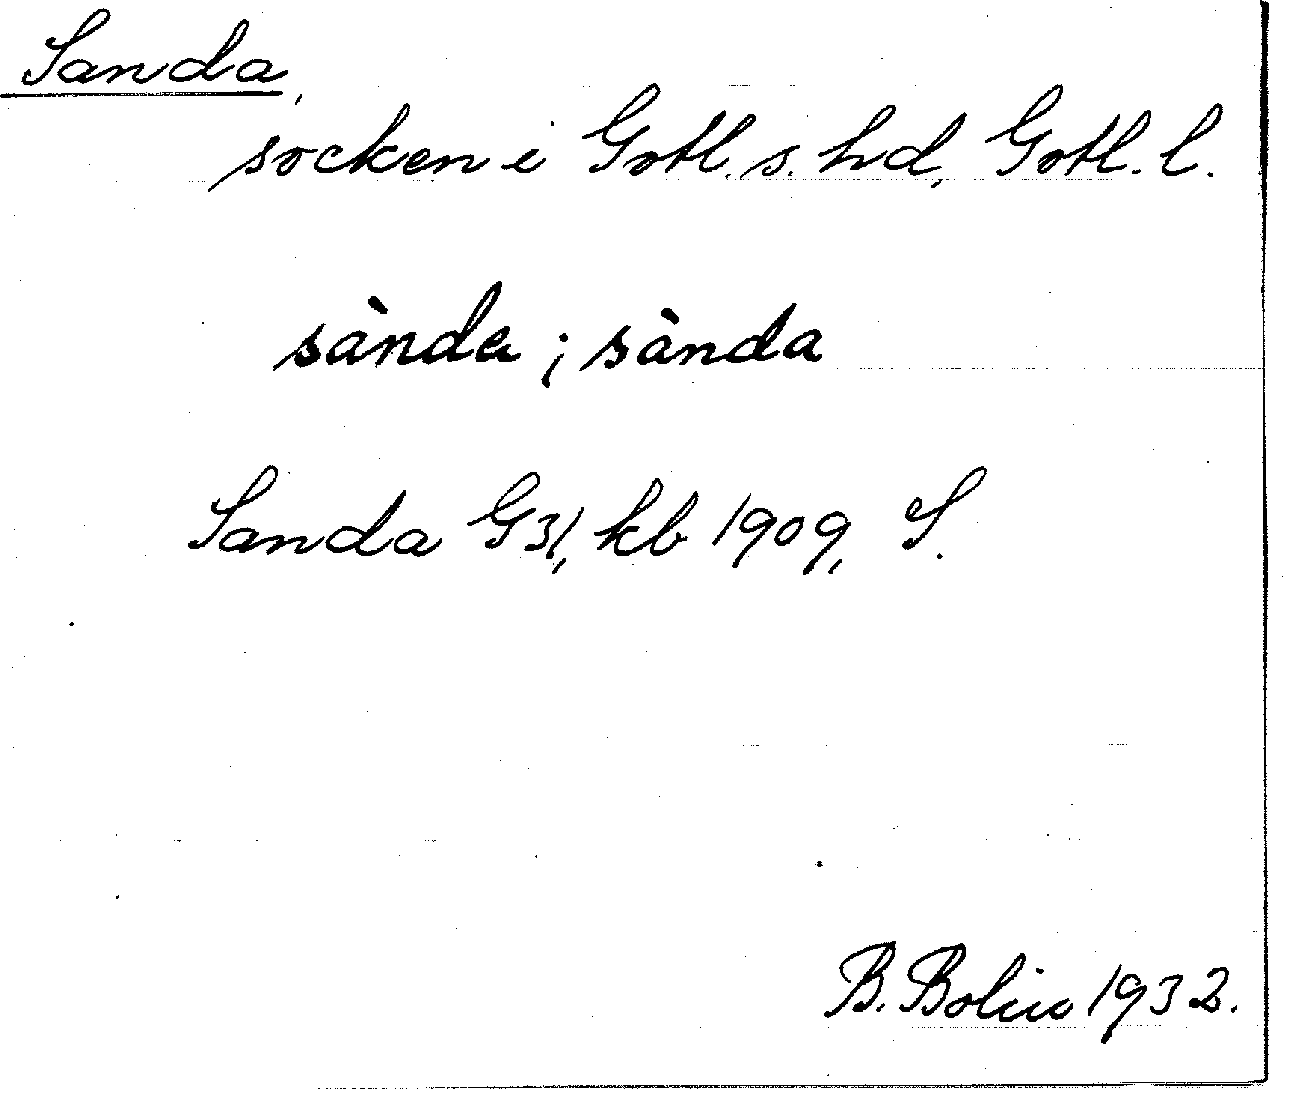 Sanda,
socken i Gotl. s. hd, Gotl. l.
sànda ; sànda
Sanda G31, kb 1909, S.
B. Bolin 1932.